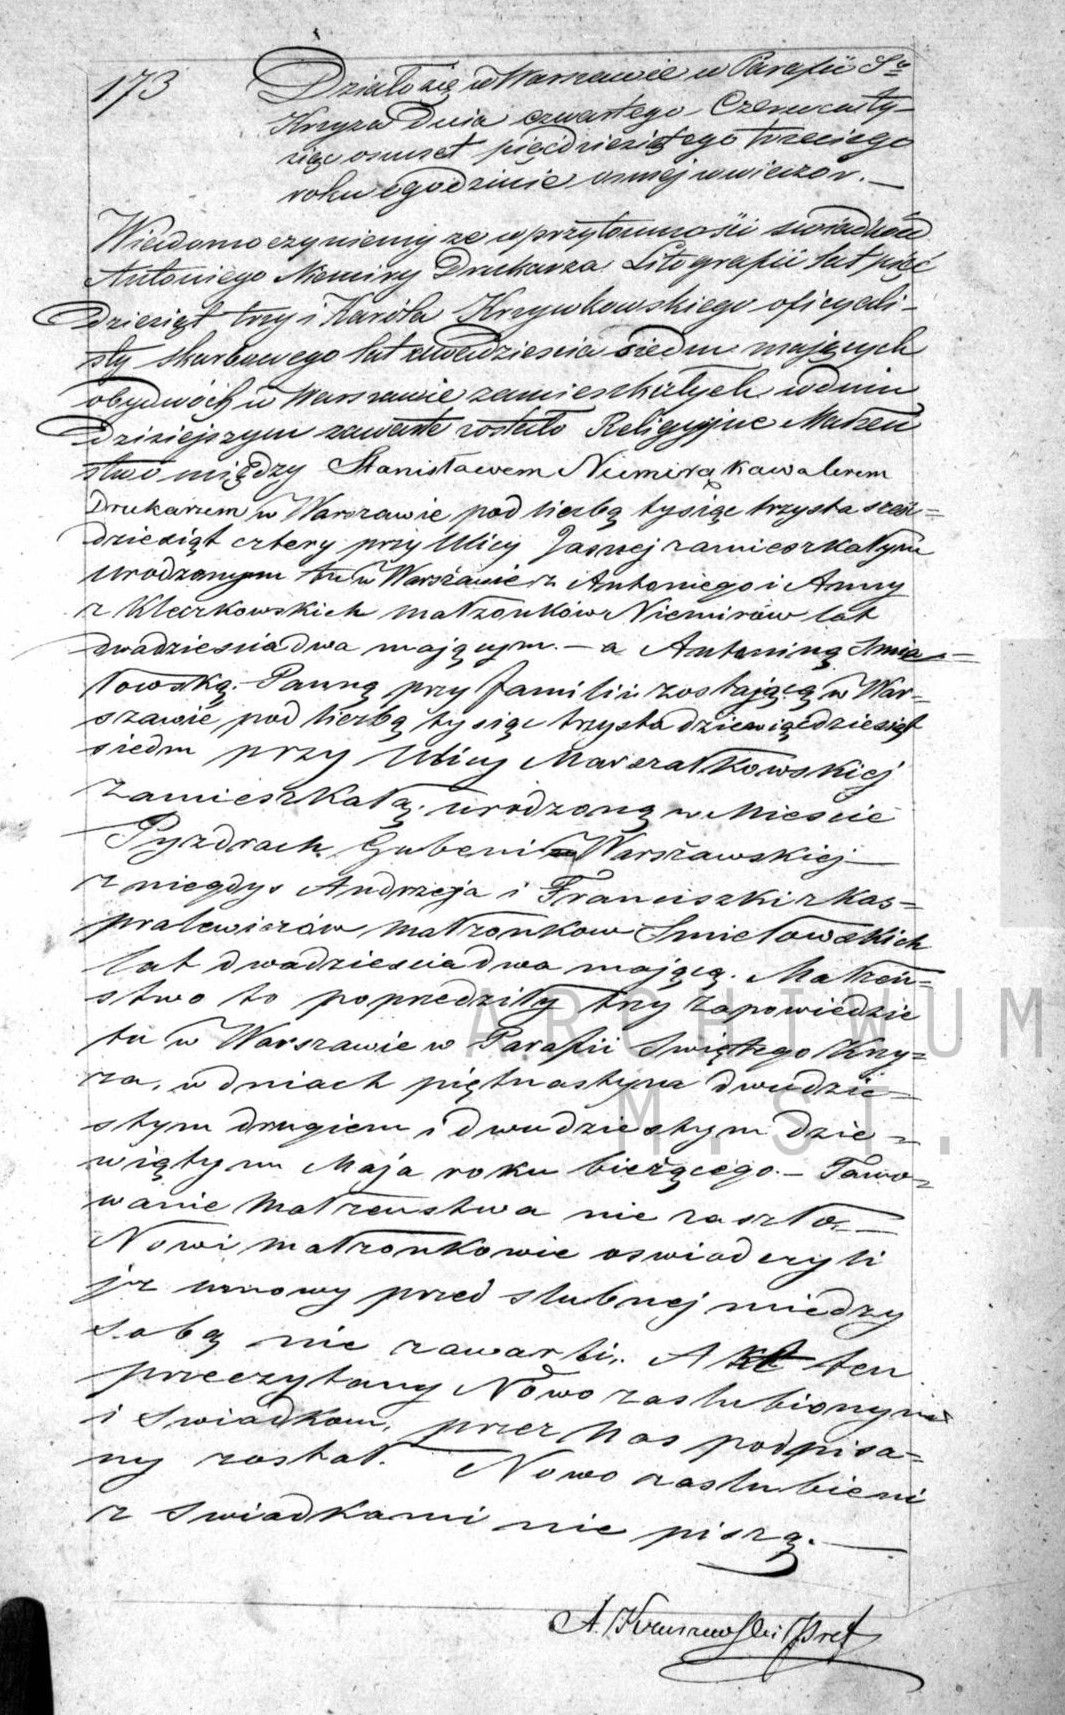 173
Działo się w Warszawie w Parafii Sgo
Krzyża Dnia czwartego Czerwca ty-
siąc osmset pięćdziesiątego trzeciego
roku o godzinie osmej wieczór. —
Wiadomo czyniemy ze w przytomności swiadków
Antoniego Niemiry Drukarza Litografii lat pięć
dziesiąt trzy i Karóla Krzywkowskiego oficyali-
sty skarbowego lat dwadzieścia siedm mających
obydwóch w Warszawie zamieszkałych w dniu
dzisiejszym zawarte zostało Religijne Małżeń
stwo między Stanisławem Niemirą kawalerem
Drukarzem w Warszawie pod liczbą tysiąc trzysta sześć=
dziesiąt cztery przy Ulicy Jasnej zamieszkałym
urodzonym tu w Warszawie z Antoniego i Anny
z Kleczkowskich małżonków Niemirów lat
dwadziescia dwa mającym. — a Antoniną Smie=
towską. Panną przy familii zostającą w War-
szawie pod liczbą tysiąc trzysta dziewięćdziesiąt
siedm przy Ulicy Marszałkowskiej
zamieszkałą, urodzoną w Mieście
Pyzdrach Guberni Warszawskiej
z niegdys Andrzeja i Franciszki z Kas=
pralewiczów małżonkow Smietowskich
lat dwadziescia dwa mającą. Małżeń=
stwo to poprzedziły trzy zapowiedzie
tu w Warszawie w Parafii Swiętego Krzy=
ża, w dniach piętnastym dwudzie=
stym drugiem i dwudziestym dzie=
wiątym Maja roku bieżącego. — Tamo=
wanie Małżeństwa nie zaszło. —
Nowi małżonkowie oswiadczyli
iż umowy przed slubnej miedzy
sobą nie zawarli. Akt ten
przeczytany Nowozaslubionym
i Swiadkom, przez Nas podpisa=
ny został. Nowozaslubieni
z Swiadkami nie piszą. —
ARCHIWUM
M. ST.